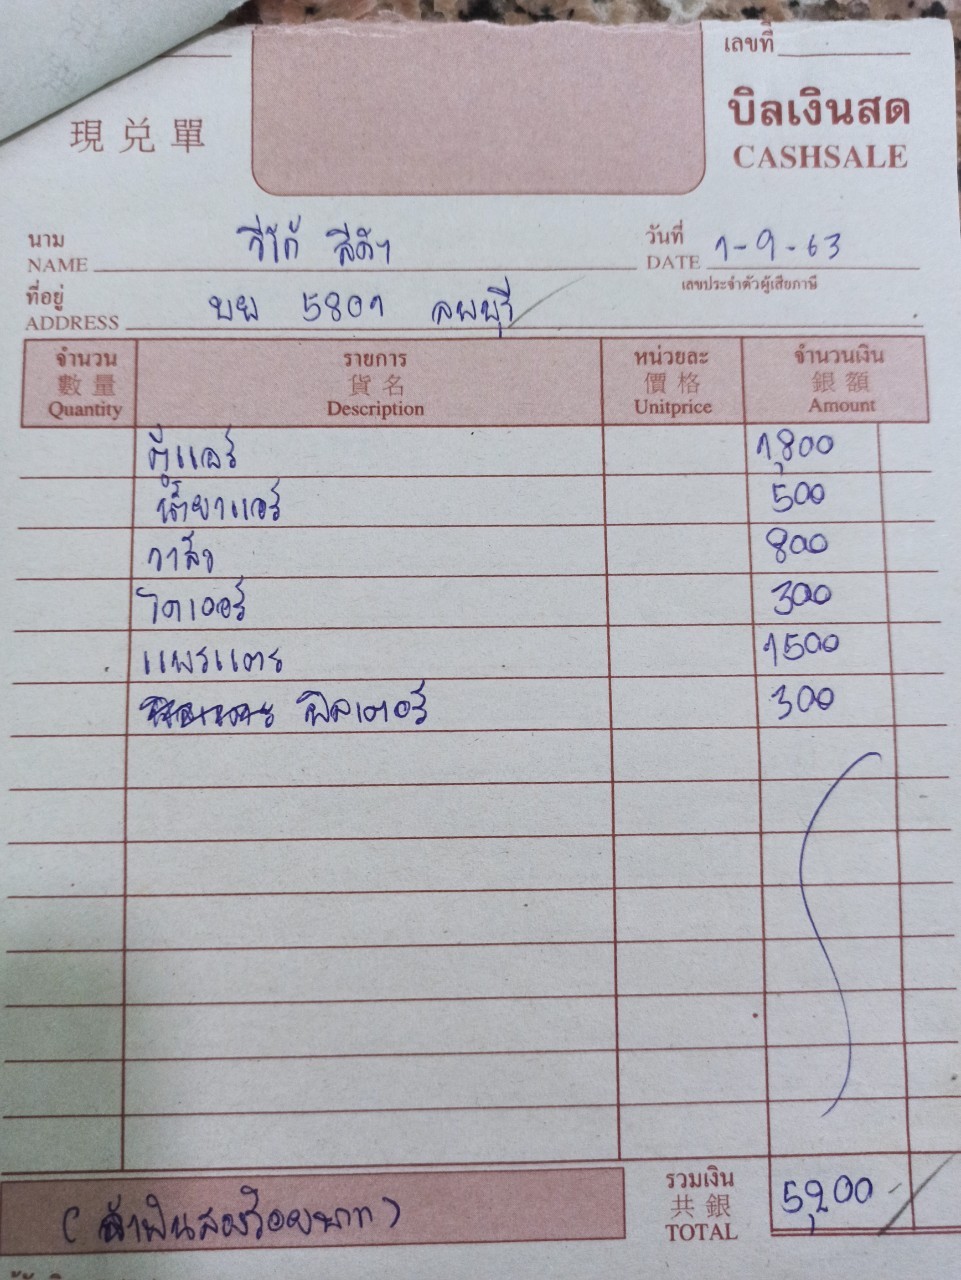 เลขที่
現兑單
บิลเงินสด
CASHSALE
นาม วีโก้ สีดำ วันที่ 1-9-63
NAME DATE
เลขประจำตัวผู้เสียภาษี
ที่อยู่ บย 5801 ลพบุรี
ADDRESS
จำนวน รายการ หน่วยละ จำนวนเงิน
數量 貨名 價格 銀額
Quantity Description Unitprice Amount
ตู้แอร์ 1,800
น้ำยาแอร์ 500
วาล์ว 800
ไดเออร์ 300
แผงแตร 1500
ฟิลเตอร์ 300
รวมเงิน 5,200
共銀
TOTAL
(ห้าพันสองร้อยบาท)